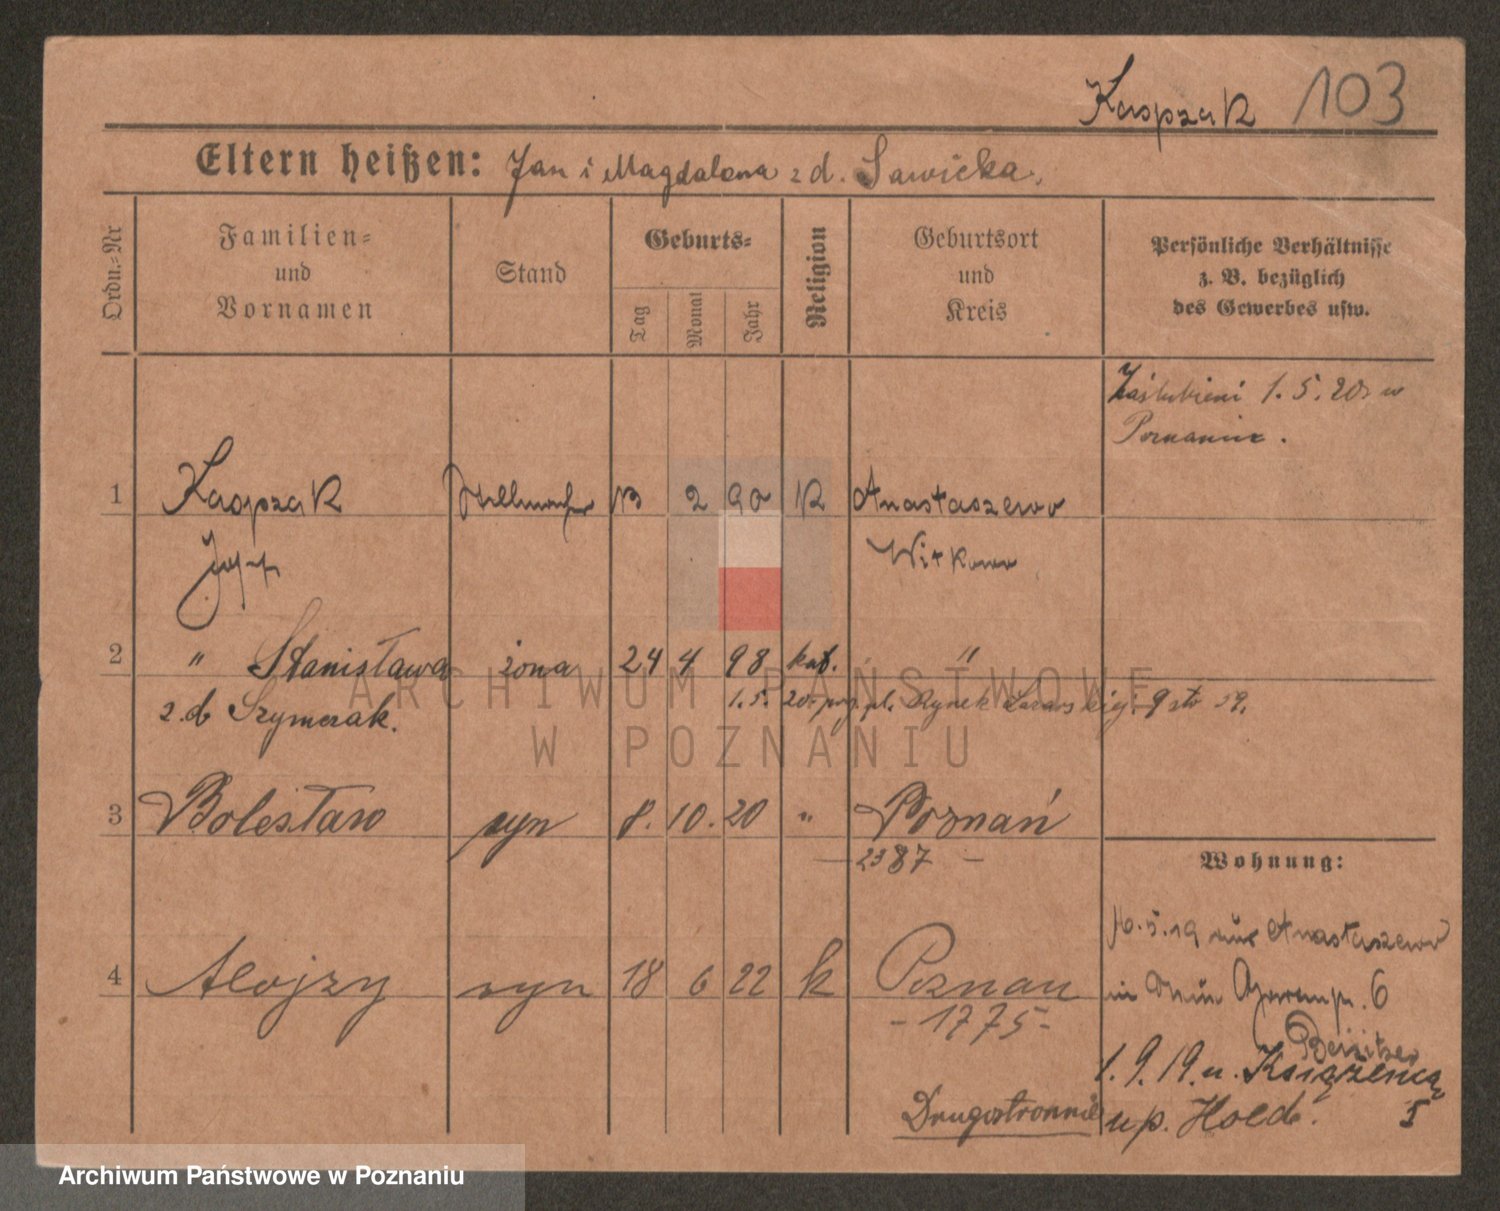 Kaspzak 103
Eltern heißen: Jan i Magdalena z d. Sawicka.
Ordn.-Nr
Familien-
und
Vornamen
Stand
Geburts-
Tag
Monat
Jahr
Religion
Geburtsort
und
Kreis
Persönliche Verhältnisse
z. B. bezüglich
des Gewerbes usw.
Zaślubieni 1. 5. 20 r w
Poznaniu.
1 Kaspzak Stellmacher 13 2 90 K Anastaszewo
Josef Witkowo
2 " Stanisława żona 24 4 98 kat. "
z. d. Szymczak. 1. 5. 20. Rynek Łazarski 9 59.
3 Bolesław syn 8. 10. 20 " Poznań
— 2387 —
Wohnung:
5. 19 aus Anastaszewo
4 Alojzy syn 18 6 22 k Poznan
6
- 1775 -
1. 9. 19. u.
Drugostronnie
u p. 5
ARCHIWUM PAŃSTWOWE
W POZNANIU
Archiwum Państwowe w Poznaniu